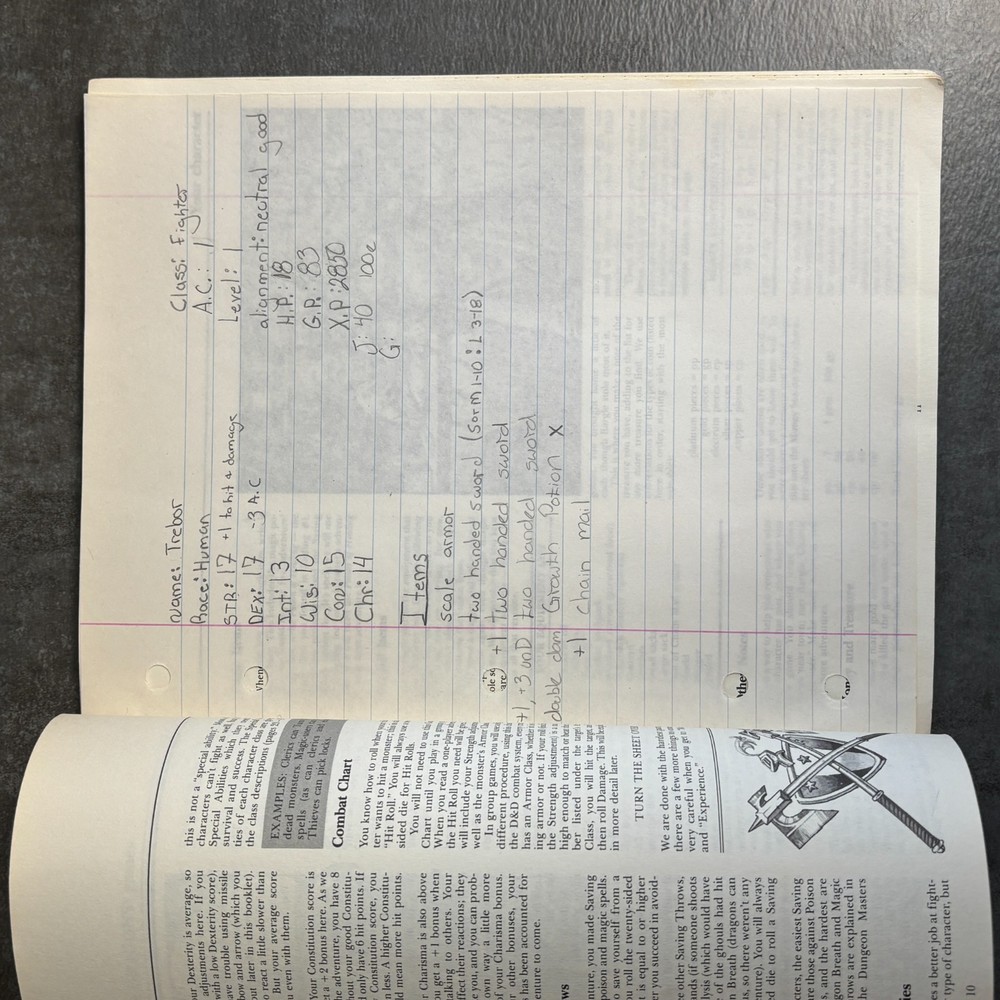 Name: Trebor
Class: Fighter
Race: Human
A.C.: 1
STR: 17 +1 to hit & damage
Level: 1
DEX: 17 -3 A.C
alignment: neutral good
Int: 13
H.P.: 18
Wis: 10
G.P.: 83
Con: 15
X.P: 2850
Chr: 14
J: 40 100c
G:
Items
scale armor
two handed sword (S or M 1-10 : L 3-18)
+1 two handed sword
+1, +3 unD two handed sword
double dam Growth Potion x
+1 chain mail
11
when
the
this is not a "special ability."
characters can't fight as well,
Special Abilities which
survival and success. The
ties of each character class
the class descriptions (pages
EXAMPLES: Clerics can
dead monsters. Magic-users
spells (as can clerics
Thieves can pick locks.
Combat Chart
You know how to roll when
ter wants to hit a monster; this
"Hit Roll." You will always
sided die for Hit Rolls.
You will not need to use
Chart until you play in a
When you read a one-player
the Hit Roll you need will be
will include your Strength
well as the monster's Armor
In group games, you will
different procedure, using
the D&D combat system,
has an Armor Class, whether
ing armor or not. If your
the Strength adjustment) is
high enough to match or
ber listed under the target
Class, you will hit the target
then roll Damage; this
in more detail later.
TURN THE SHEET
We are done with the
there are a few more things
very careful when you get
and "Experience."
ur Dexterity is average, so
adjustments here. If you
with a low Dexterity score),
ave trouble using missile
bow and arrow (which you
ou later in this booklet).
o react a little slower than
But your average score
u even with them.
Your Constitution score is
et a +2 bonus here. As we
he adventure, you have 8
out your good Constitu-
d only have 6 hit points. If
Constitution score, you
n less. A higher Constitu-
ld mean more hit points.
r Charisma is also above
u get a +1 bonus when
talking to others. Your
ffect their reactions; they
e you, and you can prob-
own way a little more
of your Charisma bonus.
r other bonuses, your
has been accounted for
enture to come.
ws
nture, you made Saving
poison and magic spells.
o save yourself from a
u roll the twenty-sided
t is equal to or higher
er you succeed in avoid-
ere other Saving Throws,
unds (if someone shoots
lysis (which would have
e of the ghouls had hit
n Breath (dragons can
us, so there weren't any
enture). You will always
d die to roll a Saving
ters, the easiest Saving
re those against Poison
s, and the hardest are
gon Breath and Magic
rows are explained in
the Dungeon Masters
es
s a better job at fight-
type of character, but
10